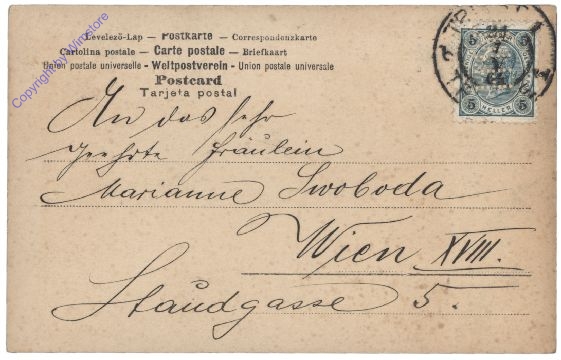 Levelező-Lap — Postkarte — Correspondenzkarte
Cartolina postale — Carte postale — Briefkaart
Union postale universelle - Weltpostverein - Union postale universale
Postcard
Tarjeta postal
Copyright by Wimstore
5 5
HELLER
5 5
An das sehr
geehrte Fräulein
Marianne Swoboda
Wien XVIII.
Staudgasse 5.